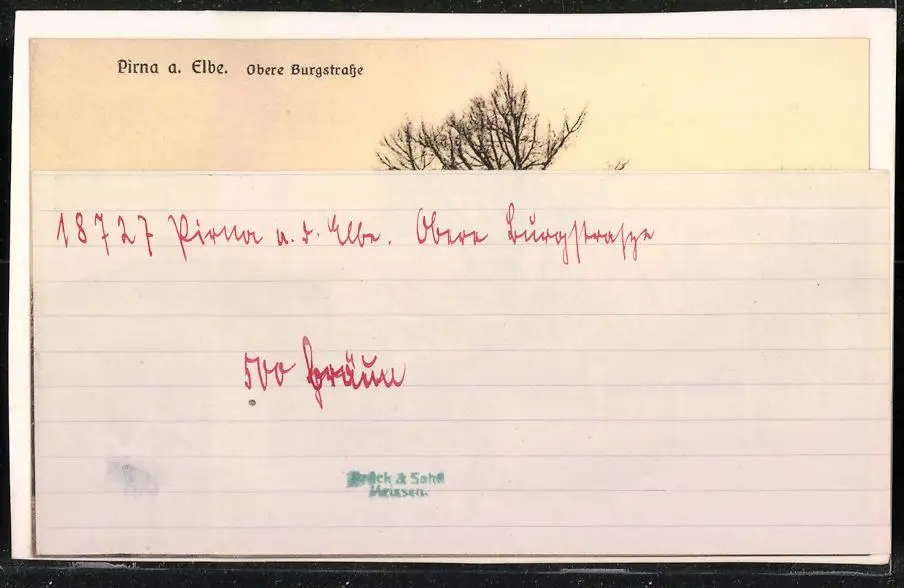 Pirna a. Elbe. Obere Burgstraße
18727 Pirna a. d. Elbe. Obere Burgstrasze
500 bräun
Brück & Sohn
Meissen.